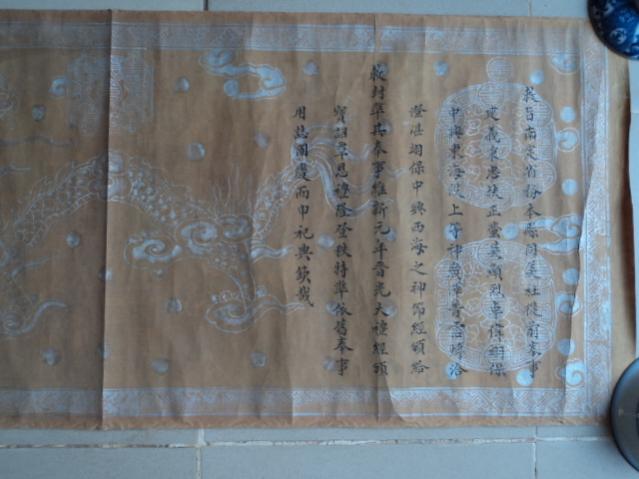 敕旨南定省務本縣同美社從前奉事
義秉忠扶正英顯烈卓偉翊保
中興東海上等神普雲洽
澄湛翊保中興西海之神節經頒給
敕封準其奉事維新元年晉光大禮經頒
寶詔覃恩禮隆登秩特準依舊奉事
用誌國慶而申祀典欽哉